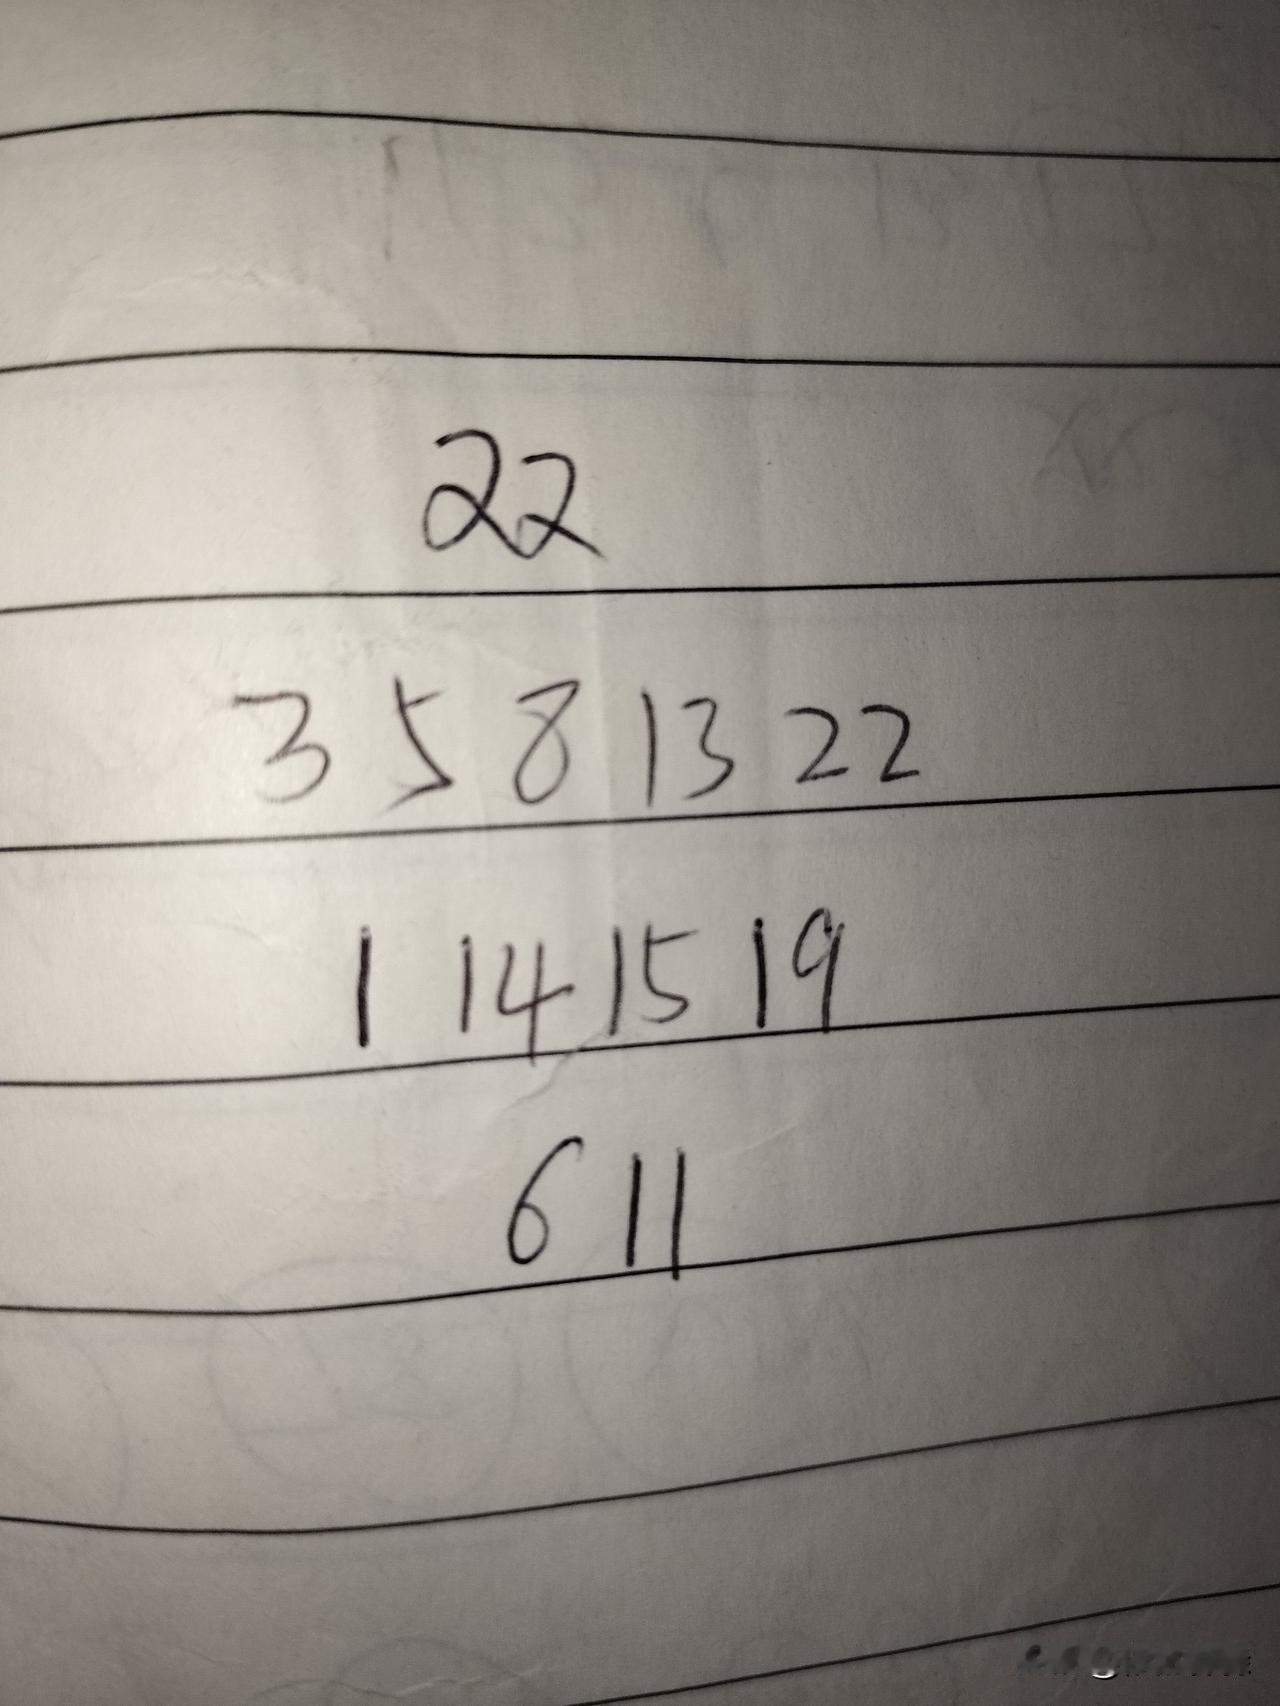 22
3 5 8 13 22
1 14 15 19
6 11